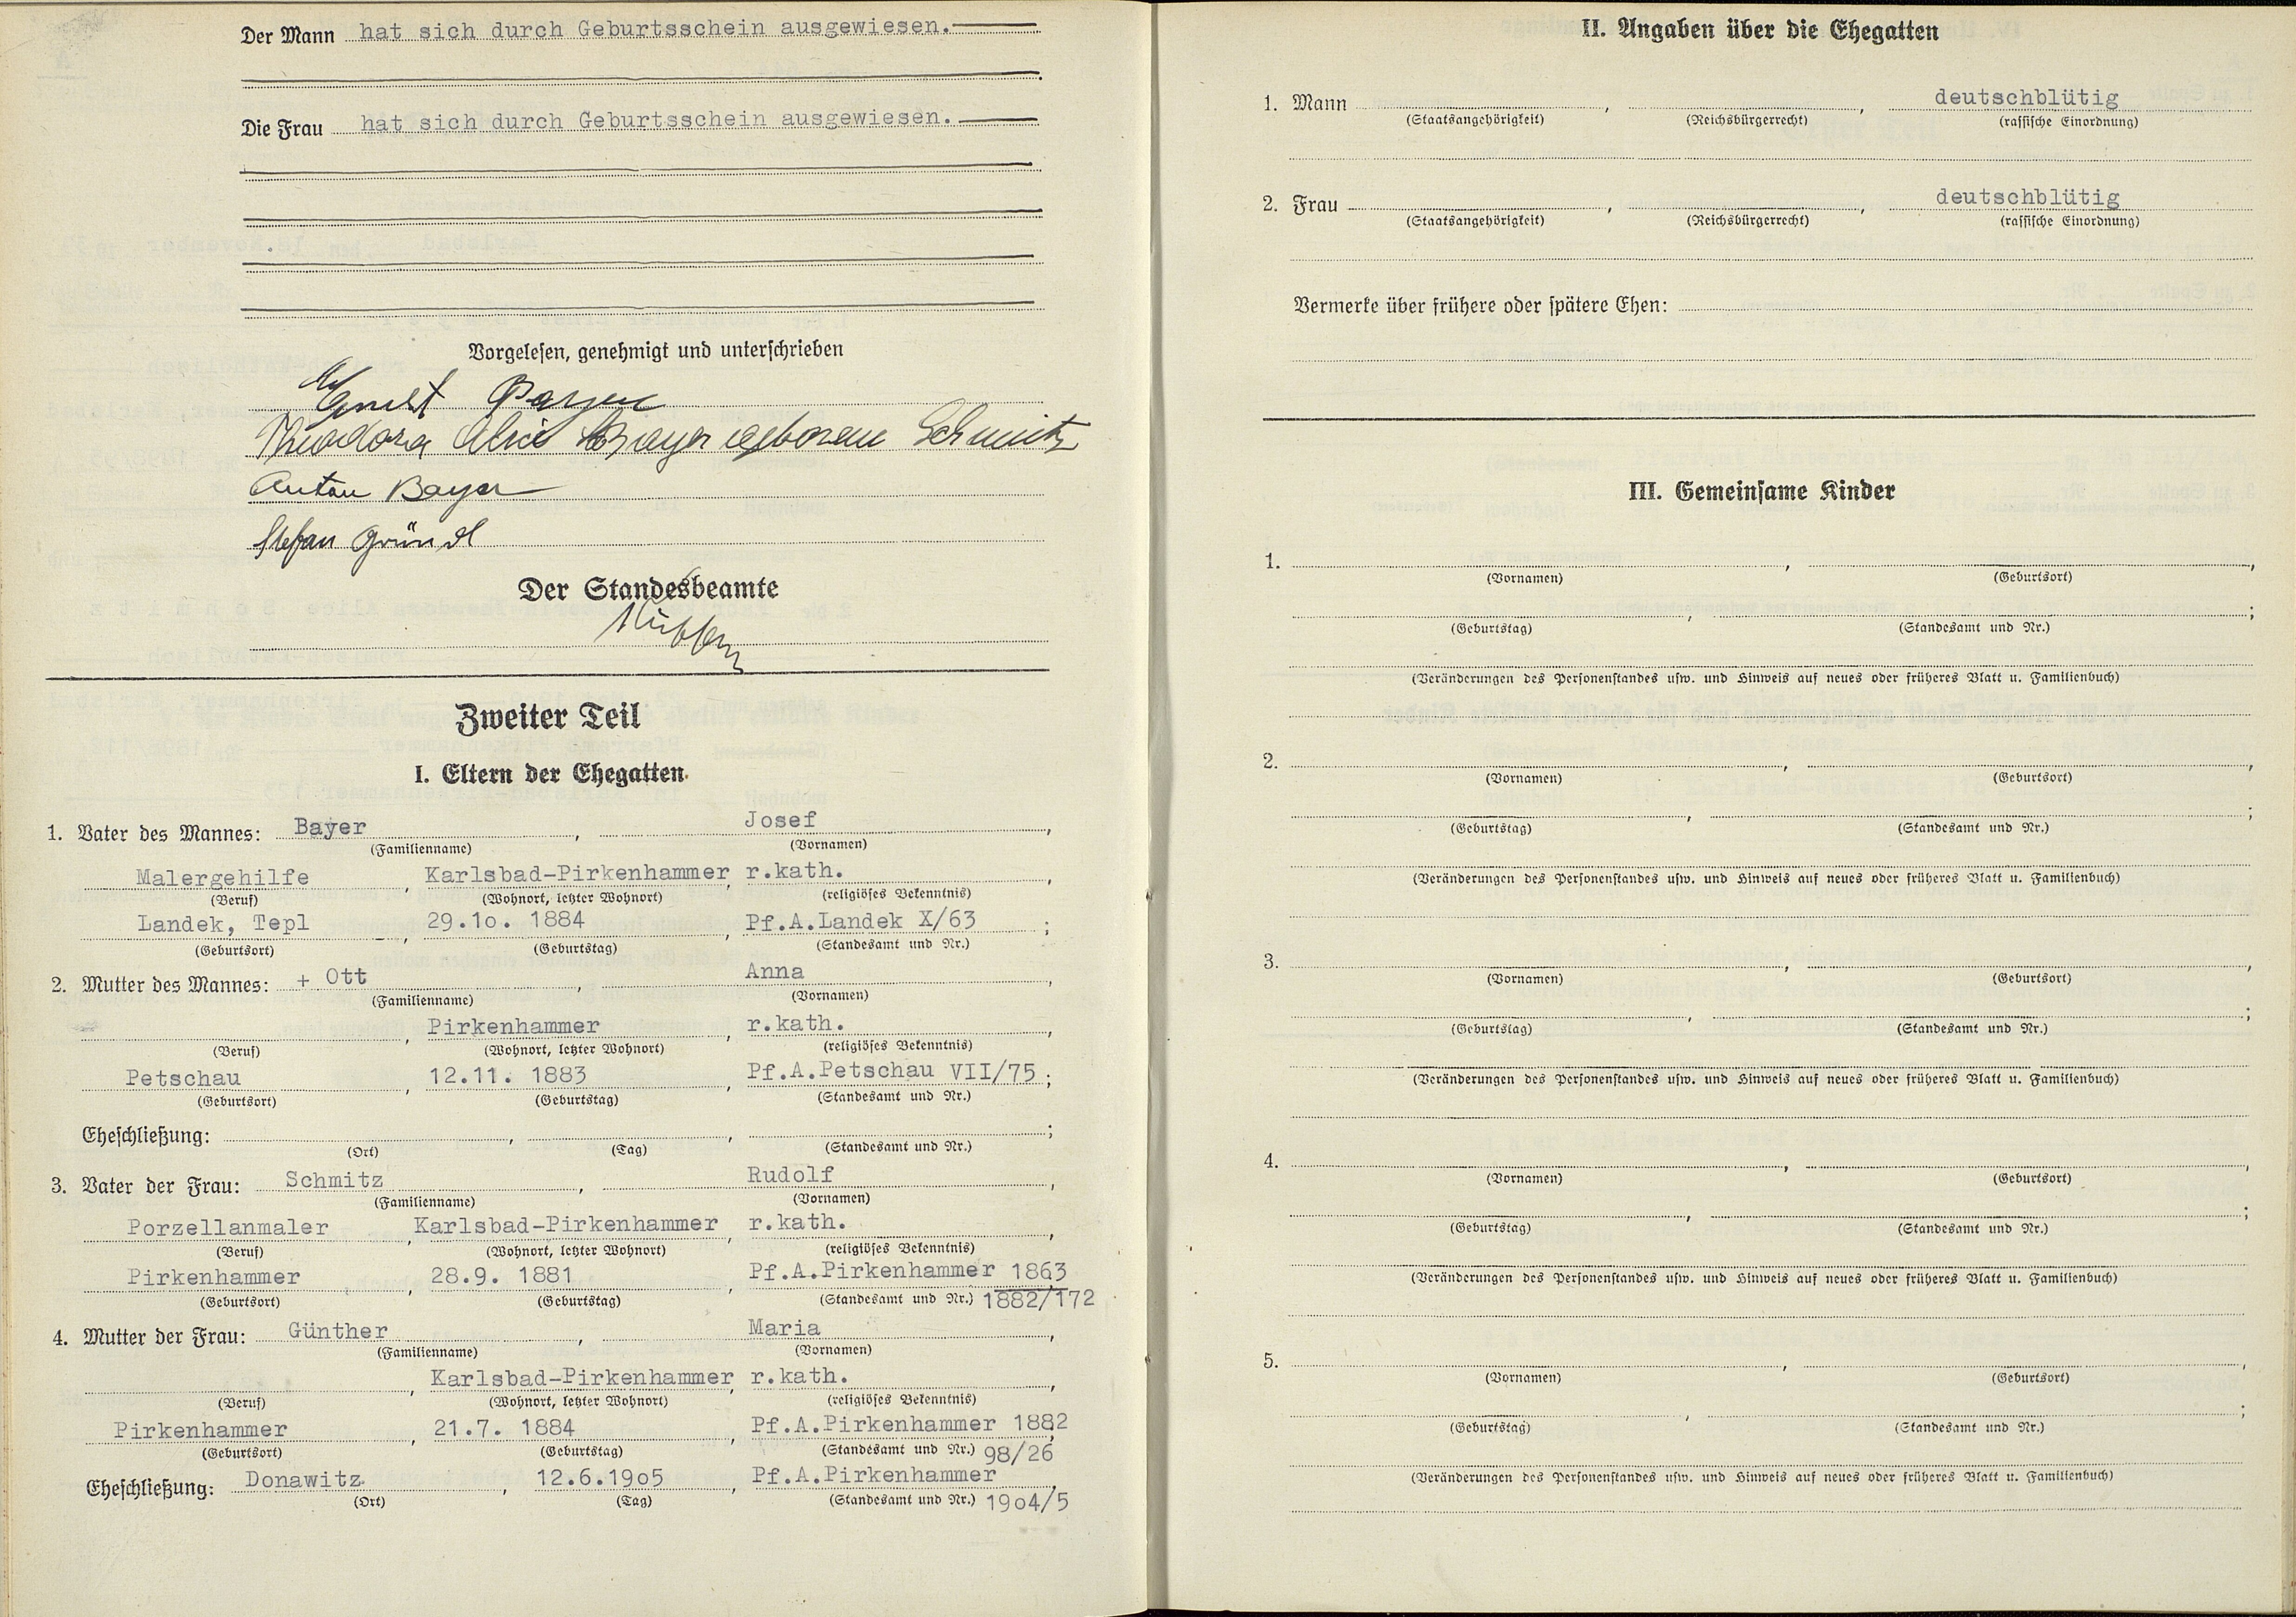 Der Mann hat sich durch Geburtsschein ausgewiesen.
Die Frau hat sich durch Geburtsschein ausgewiesen.
Vorgelesen, genehmigt und unterschrieben
Ernst Bayer
Theodora Alice Bayer geborene Schmitz
Anton Bayer
Stefan Gründl
Der Standesbeamte
Zweiter Teil
I. Eltern der Ehegatten
1. Vater des Mannes: Bayer, Josef,
(Familienname) (Vornamen)
Malergehilfe, Karlsbad-Pirkenhammer, r.kath.,
(Beruf) (Wohnort, letzter Wohnort) (religiöses Bekenntnis)
Landek, Tepl, 29.1o. 1884, Pf.A.Landek X/63;
(Geburtsort) (Geburtstag) (Standesamt und Nr.)
2. Mutter des Mannes: + Ott, Anna,
(Familienname) (Vornamen)
, Pirkenhammer, r.kath.,
(Beruf) (Wohnort, letzter Wohnort) (religiöses Bekenntnis)
Petschau, 12.11. 1883, Pf.A.Petschau VII/75;
(Geburtsort) (Geburtstag) (Standesamt und Nr.)
Eheschließung: , , ;
(Ort) (Tag) (Standesamt und Nr.)
3. Vater der Frau: Schmitz, Rudolf,
(Familienname) (Vornamen)
Porzellanmaler, Karlsbad-Pirkenhammer, r.kath.,
(Beruf) (Wohnort, letzter Wohnort) (religiöses Bekenntnis)
Pirkenhammer, 28.9. 1881, Pf.A.Pirkenhammer 1863;
(Geburtsort) (Geburtstag) (Standesamt und Nr.) 1882/172
4. Mutter der Frau: Günther, Maria,
(Familienname) (Vornamen)
, Karlsbad-Pirkenhammer, r.kath.,
(Beruf) (Wohnort, letzter Wohnort) (religiöses Bekenntnis)
Pirkenhammer, 21.7. 1884, Pf.A.Pirkenhammer 1882;
(Geburtsort) (Geburtstag) (Standesamt und Nr.) 98/26
Eheschließung: Donawitz, 12.6.19o5, Pf.A.Pirkenhammer.
(Ort) (Tag) (Standesamt und Nr.) 19o4/5
II. Angaben über die Ehegatten
1. Mann , , deutschblütig
(Staatsangehörigkeit) (Reichsbürgerrecht) (rassische Einordnung)
2. Frau , , deutschblütig
(Staatsangehörigkeit) (Reichsbürgerrecht) (rassische Einordnung)
Vermerke über frühere oder spätere Ehen:
III. Gemeinsame Kinder
1. , ,
(Vornamen) (Geburtsort)
, ;
(Geburtstag) (Standesamt und Nr.)
(Veränderungen des Personenstandes usw. und Hinweis auf neues oder früheres Blatt u. Familienbuch)
2. , ,
(Vornamen) (Geburtsort)
, ;
(Geburtstag) (Standesamt und Nr.)
(Veränderungen des Personenstandes usw. und Hinweis auf neues oder früheres Blatt u. Familienbuch)
3. , ,
(Vornamen) (Geburtsort)
, ;
(Geburtstag) (Standesamt und Nr.)
(Veränderungen des Personenstandes usw. und Hinweis auf neues oder früheres Blatt u. Familienbuch)
4. , ,
(Vornamen) (Geburtsort)
, ;
(Geburtstag) (Standesamt und Nr.)
(Veränderungen des Personenstandes usw. und Hinweis auf neues oder früheres Blatt u. Familienbuch)
5. , ,
(Vornamen) (Geburtsort)
, ;
(Geburtstag) (Standesamt und Nr.)
(Veränderungen des Personenstandes usw. und Hinweis auf neues oder früheres Blatt u. Familienbuch)